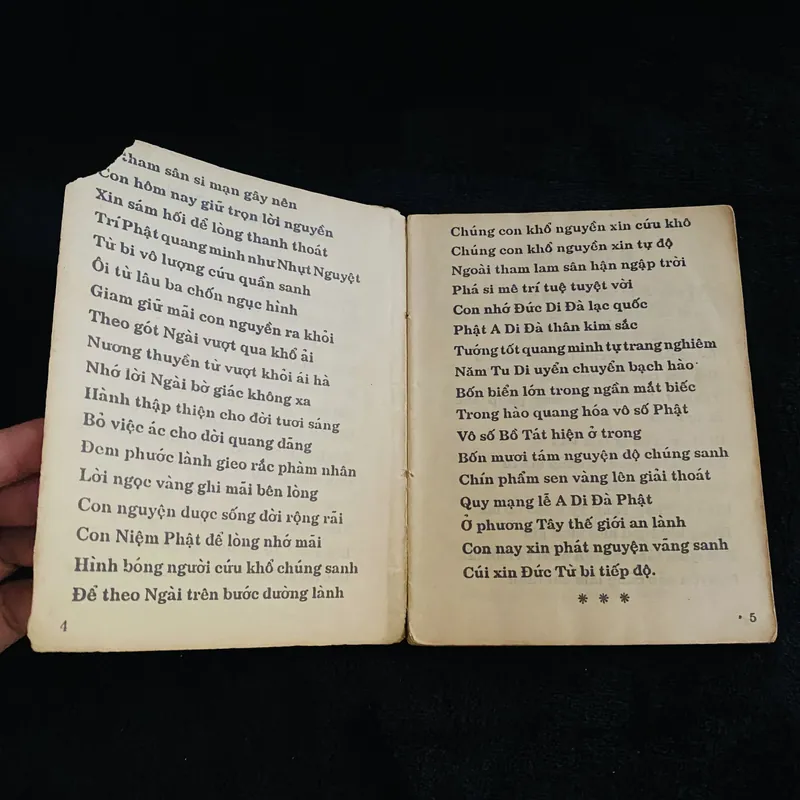 tham sân si mạn gây nên
Con hôm nay giữ trọn lời nguyền
Xin sám hối để lòng thanh thoát
Trí Phật quang minh như Nhựt Nguyệt
Từ bi vô lượng cứu quần sanh
Ôi từ lâu ba chốn ngục hình
Giam giữ mãi con nguyền ra khỏi
Theo gót Ngài vượt qua khổ ải
Nương thuyền từ vượt khỏi ái hà
Nhớ lời Ngài bờ giác không xa
Hành thập thiện cho đời tươi sáng
Bỏ việc ác cho dời quang dãng
Đem phước lành gieo rắc phàm nhân
Lời ngọc vàng ghi mãi bên lòng
Con nguyện dược sống dời rộng rãi
Con Niệm Phật để lòng nhớ mãi
Hình bóng người cứu khổ chúng sanh
Để theo Ngài trên bước dường lành
4
Chúng con khổ nguyền xin cứu khô
Chúng con khổ nguyền xin tự độ
Ngoài tham lam sân hận ngập trời
Phá si mê trí tuệ tuyệt vời
Con nhớ Đức Di Đà lạc quốc
Phật A Di Đà thân kim sắc
Tướng tốt quang minh tự trang nghiêm
Năm Tu Di uyển chuyển bạch hào
Bốn biển lớn trong ngần mắt biếc
Trong hào quang hóa vô số Phật
Vô số Bồ Tát hiện ở trong
Bốn mươi tám nguyện dộ chúng sanh
Chín phẩm sen vàng lên giải thoát
Quy mạng lễ A Di Đà Phật
Ở phương Tây thế giới an lành
Con nay xin phát nguyện vãng sanh
Cúi xin Đức Từ bi tiếp dộ.
* * *
5